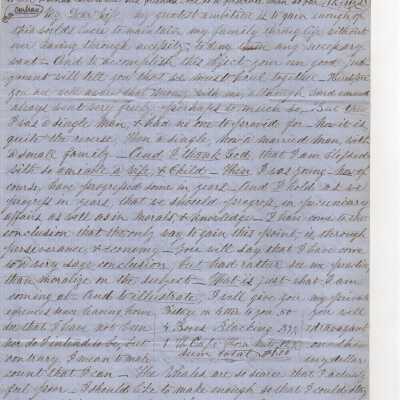 My Dear wife, my greatest ambition is to gain enough of
this worlds lucre to maintain my family through life without
ever having through necessity, to deny them any necessary
want - And to accomplish this object your own good jud-
gement will tell you that we must pull together - Therefore
you are well aware that money with me, although hard earned
always went very freely - perhaps to much so, - But then
I was a single man, & had no one to provid for - Now it is
quite the reverse, Then a single, now a married man, with
a small family - And I thank God, that I am blessed
with so a wife, & Child - Then I was young - Now of
course, have progressed some in years - And I hold as we
progress in years, that we should progress, in pecuniary
affairs as well as in morals & knowledge - I have come to the
conclusion that the only way to gain this point, is through
perseverance & economy - You will say that I have come
to a very sage conclusion, but had rather see me practice
than moralize on the subject - That is just what I am
coming at - And to illustrate, I will give you my
expences since leaving home, 2 50 you will
see that I have not been 4 Boxes Blacking
nor do I intend to be, but 1 Cap
contrary I mean to make sum total every dollar
count that I can - The Whales are so scarce that I actually
feel poor - I should like to make enough so that I could stay